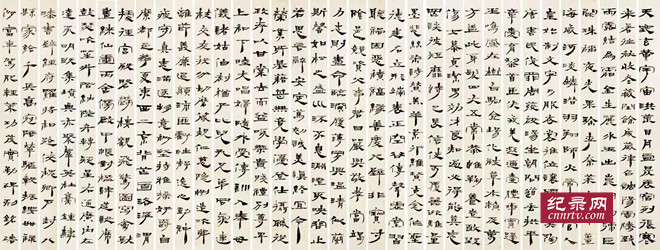 天地玄黃宇宙洪荒日月盈昃辰宿列張寒
來暑往秋收冬藏閏餘成歲律呂調陽雲騰致
雨露結為霜金生麗水玉出崑岡劍號巨
闕珠稱夜光果珍李柰菜重芥薑
海鹹河淡鱗潛羽翔龍師火帝鳥官人
皇始制文字乃服衣裳推位讓國有虞陶
唐弔民伐罪周發商湯坐朝問道垂拱平
章愛育黎首臣伏戎羌遐邇壹體率賓歸
王鳴鳳在樹白駒食場化被草木賴及萬
方蓋此身髮四大五常恭惟鞠養豈敢毀
傷女慕貞絜男效才良知過必改得能莫忘
罔談彼短靡恃己長信使可覆器欲難量
墨悲絲染詩讚羔羊景行維賢克念作聖
德建名立形端表正空谷傳聲虛堂習
聽禍因惡積福緣善慶尺璧非寶寸
陰是競資父事君曰嚴與敬孝當竭
力忠則盡命臨深履薄夙興溫凊似蘭
斯馨如松之盛川流不息淵澄取映容止
若思言辭安定篤初誠美慎終宜令
榮業所基籍甚無竟學優登仕攝職從
政存以甘棠去而益詠樂殊貴賤禮別尊卑
上和下睦夫唱婦隨外受傅訓入奉母
儀諸姑伯叔猶子比兒孔懷兄弟同氣連
枝交友投分切磨箴規仁慈隱惻造次弗
離節義廉退顛沛匪虧性靜情逸心動神
疲守真志滿逐物意移堅持雅操好爵自
縻都邑華夏東西二京背邙面洛浮渭
據涇宮殿盤鬱樓觀飛驚圖寫禽獸
畫彩仙靈丙舍傍啟甲帳對楹肆筵設席
鼓瑟吹笙升階納陛弁轉疑星右通廣內左
達承明既集墳典亦聚群英杜稿鍾隸
漆書壁經府羅將相路俠槐卿戶封八
縣家給千兵高冠陪輦驅轂振纓世祿
侈富車駕肥輕策功茂實勒碑刻銘
纪录网
cnnrtv.com